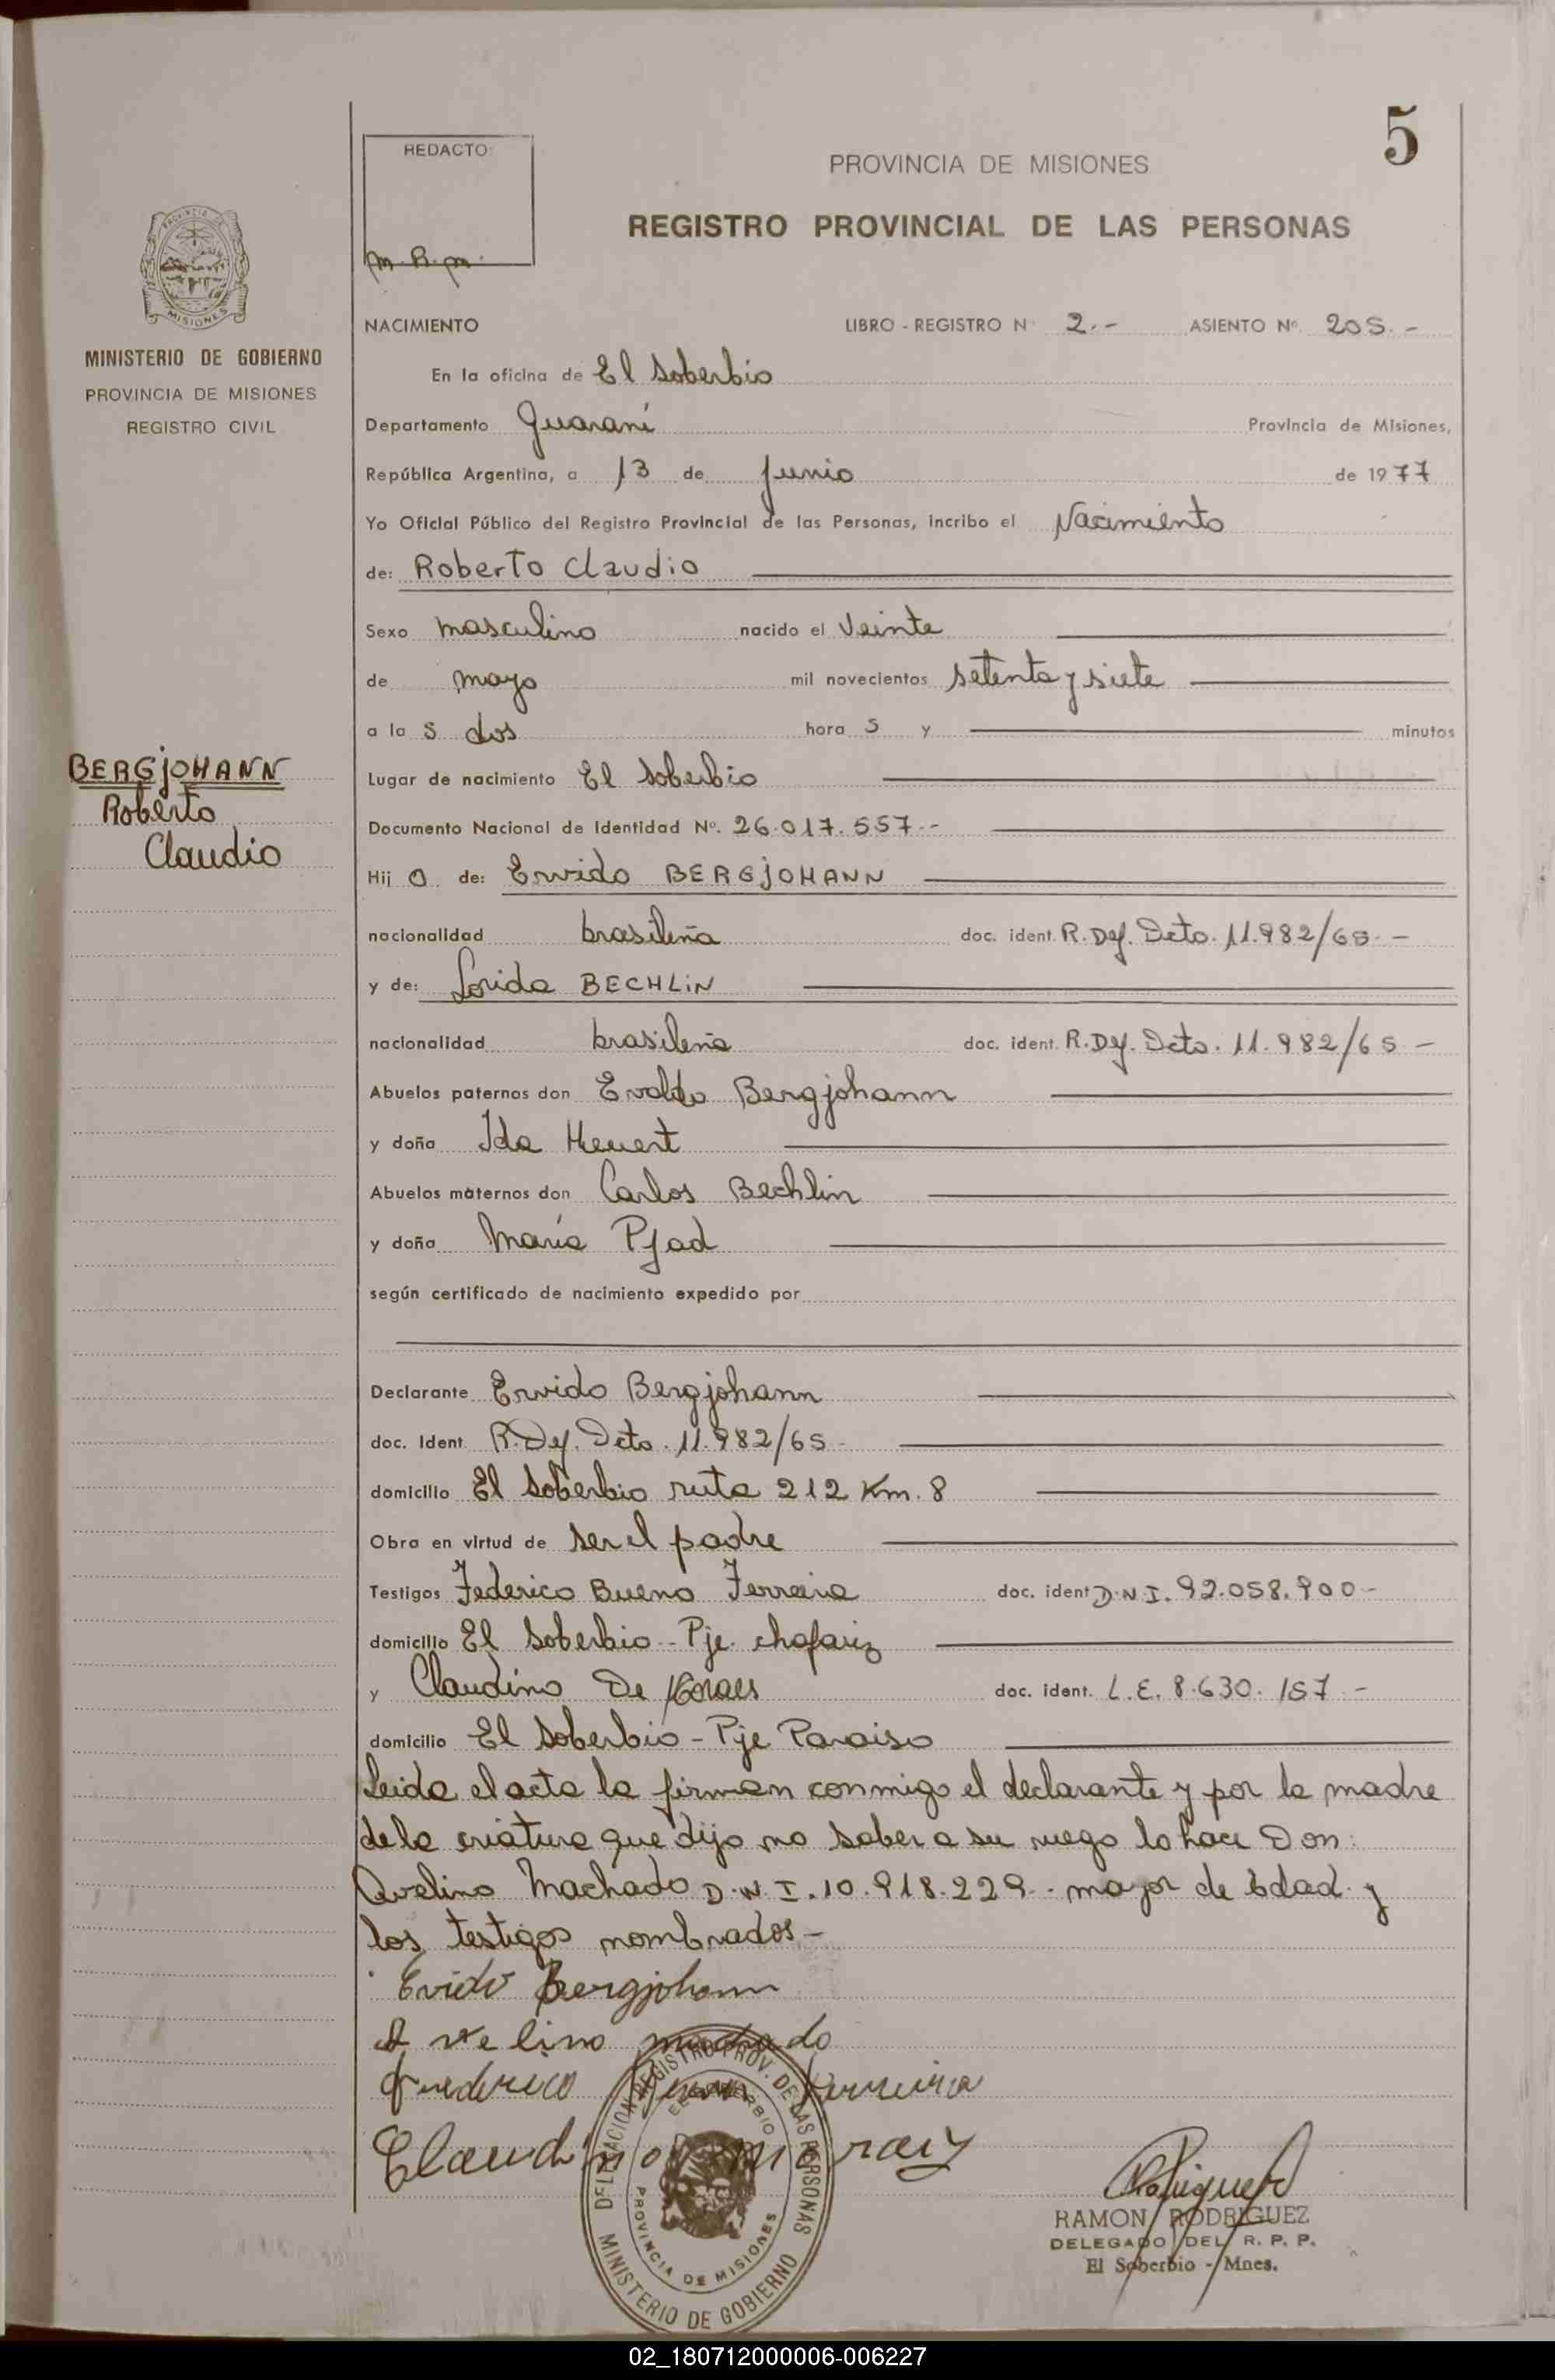 5
REDACTO:
m. R. m.
PROVINCIA DE MISIONES
REGISTRO PROVINCIAL DE LAS PERSONAS
PROVINCIA DE
MISIONES
MINISTERIO DE GOBIERNO
PROVINCIA DE MISIONES
REGISTRO CIVIL
BERGjOHANN
Roberto
Claudio
NACIMIENTO LIBRO - REGISTRO N° 2.- ASIENTO Nº 205.-
En la oficina de El Soberbio
Departamento Guaraní Provincia de Misiones,
República Argentina, a 13 de junio de 1977
Yo Oficial Público del Registro Provincial de las Personas, incribo el Nacimiento
de: Roberto Claudio
Sexo masculino nacido el Veinte
de mayo mil novecientos setenta y siete
a la s dos hora s y minutos
Lugar de nacimiento El Soberbio
Documento Nacional de Identidad Nº. 26.017.557.-
Hij o de: Ervido BERGjOHANN
nacionalidad brasileña doc. ident. R. Def. Dcto. 11.982/65.-
y de: Lorida BECHLiN
nacionalidad brasileña doc. ident. R. Def. Dcto. 11.982/65 -
Abuelos paternos don Evaldo Bergjohann
y doña Ida Hewert
Abuelos maternos don Carlos Bechlin
y doña María Pfad
según certificado de nacimiento expedido por
Declarante Ervido Bergjohann
doc. Ident. R. Def. Dcto. 11.982/65-
domicilio El Soberbio ruta 212 Km. 8
Obra en virtud de ser el padre
Testigos Federico Bueno Ferreira doc. ident D.N.I. 92.058.900-
domicilio El Soberbio - Pje. chafariz
y Claudino De Moraes doc. ident. L.E. 8.630.157 -
domicilio El Soberbio - Pje Paraiso
Leida el acta la firman conmigo el declarante y por la madre
de la criatura que dijo no saber a su ruego lo hace Don:
Avelino Machado D.N.I. 10.918.229.- mayor de Edad y
los testigos nombrados.-
Ervido Bergjohann
Avelino machado
Frederico Ferreira
DELEGACION REGISTRO PROV. DE LAS PERSONAS
EL SOBERBIO
PROVINCIA DE MISIONES
MINISTERIO DE GOBIERNO
RAMON RODRIGUEZ
DELEGADO DEL R. P. P.
El Soberbio - Mnes.
02_180712000006-006227